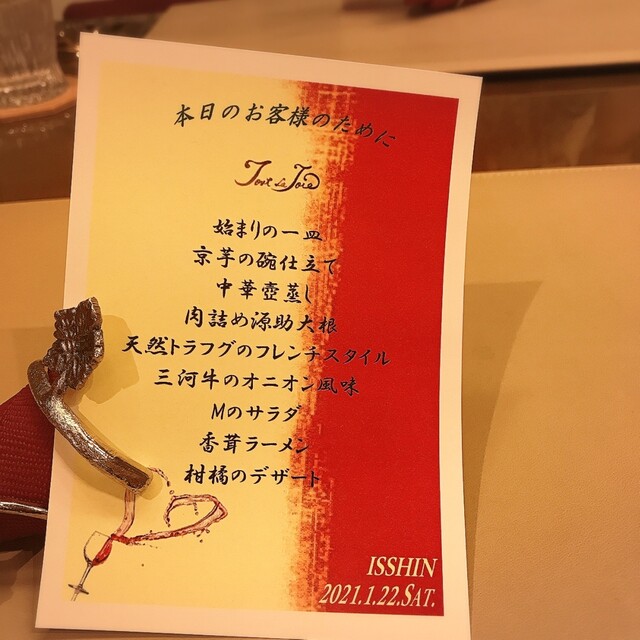 本日のお客様のために
Tout La Joie
始まりの一皿
京芋の碗仕立て
中華壺蒸し
肉詰め源助大根
天然トラフグのフレンチスタイル
三河牛のオニオン風味
Mのサラダ
香茸ラーメン
柑橘のデザート
ISSHIN
2021.1.22.SAT.